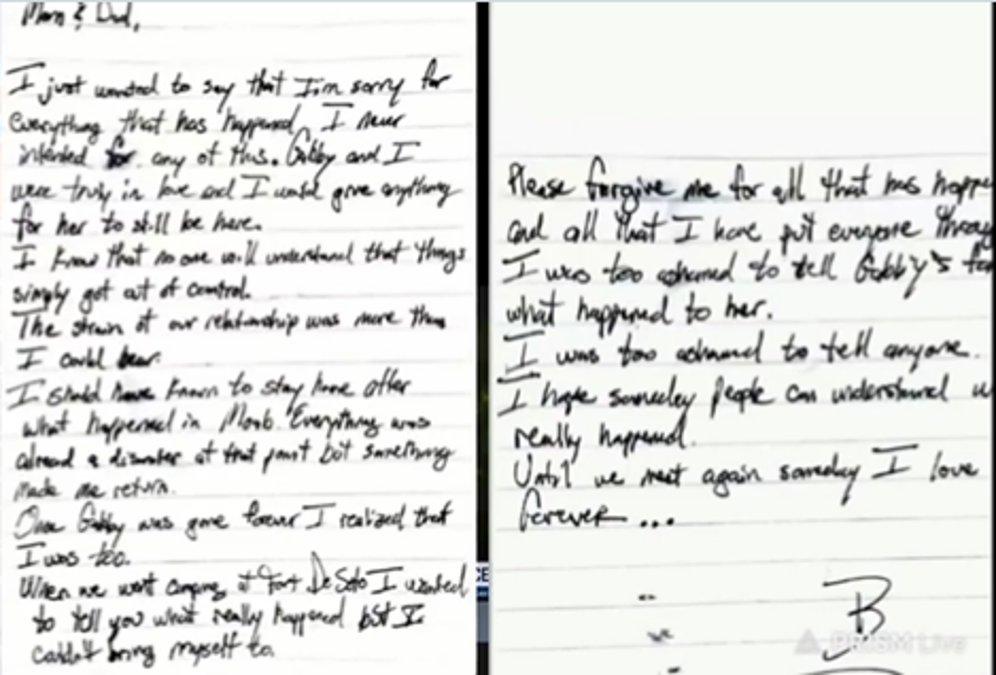 Mom & Dad,
I just wanted to say that I'm sorry for
everything that has happened. I never
intended for any of this. Gabby and I
were truly in love and I would give anything
for her to still be here.
I know that no one will understand that things
simply got out of control.
The strain of our relationship was more than
I could bear.
I should have known to stay home after
what happened in Moab. Everything was
already a disaster at that point but something
made me return.
Once Gabby was gone forever I realized that
I was too.
When we went camping at Fort De Soto I wanted
to tell you what really happened but I
couldn't bring myself to.
Please forgive me for all that has happe
and all that I have put everyone throug
I was too ashamed to tell Gabby's fam
what happened to her.
I was too ashamed to tell anyone.
I hope someday people can understand w
really happened.
Until we meet again someday I love
forever...
B
PRISM Live
CE